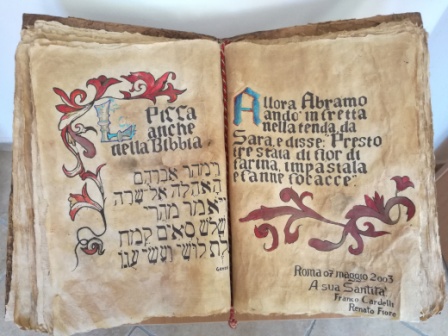 La Pizza
anche
nella Bibbia
וימהר אברהם
האהלה אל־שרה
ויאמר מהרי
שלש סאים קמח
סלת לושי ועשי עגו
Allora Abramo
andò in fretta
nella tenda da
Sara, e disse: "Presto
tre staia di fior di
farina, impastala
e fanne focacce".
Roma 07 maggio 2003
A sua Santità
Franco Cardelli
Renato Fiore